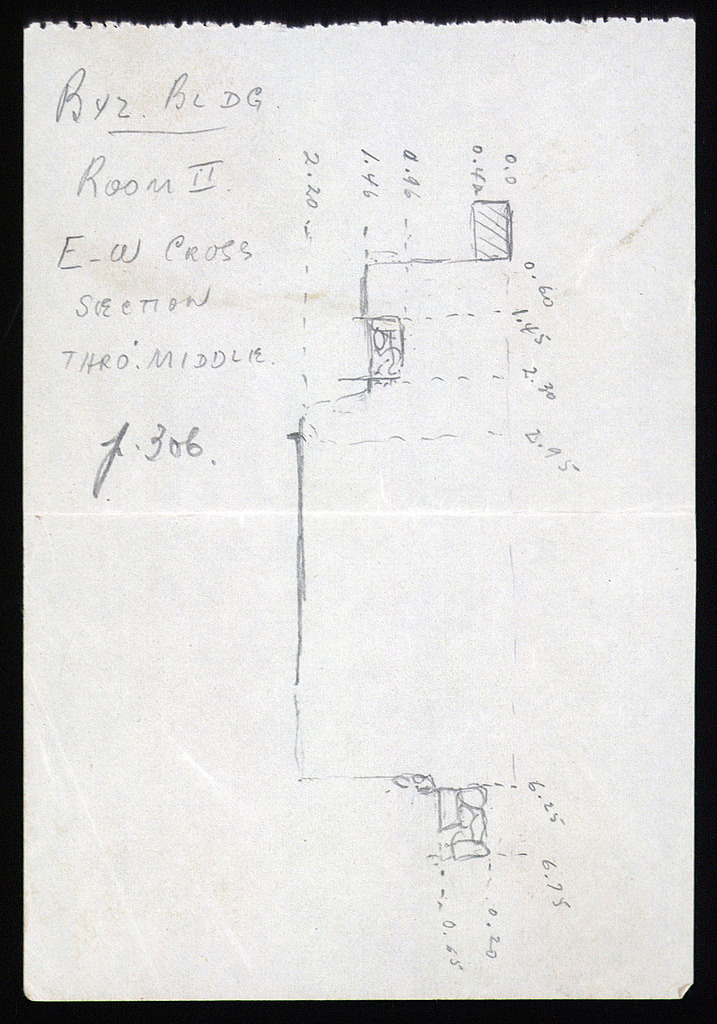 BYZ. BLDG.
ROOM II.
E-W CROSS
SECTION
THRO. MIDDLE.
p. 306.
2.20
1.46
0.96
0.0
0.60
1.45
2.30
2.95
6.25
6.75
0.20
0.65